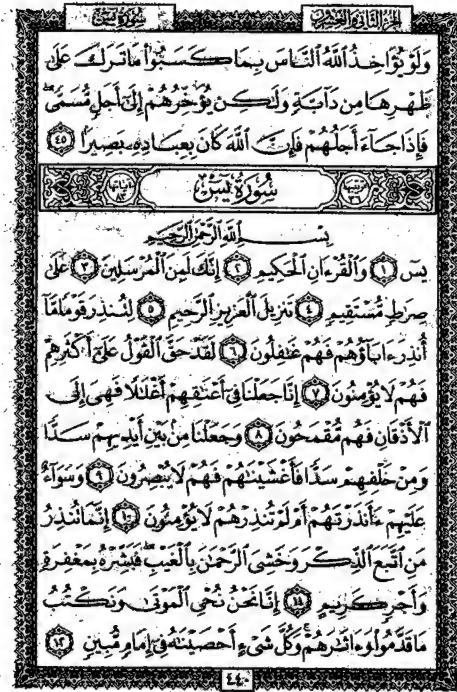 الجزء الثاني والعشرون سورة يس
وَلَوْ يُؤَاخِذُ ٱللَّهُ ٱلنَّاسَ بِمَا كَسَبُوا۟ مَا تَرَكَ عَلَىٰ
ظَهْرِهَا مِن دَآبَّةٍ وَلَـٰكِن يُؤَخِّرُهُمْ إِلَىٰٓ أَجَلٍ مُّسَمًّى ۖ
فَإِذَا جَآءَ أَجَلُهُمْ فَإِنَّ ٱللَّهَ كَانَ بِعِبَادِهِۦ بَصِيرًۢا ٤٥
ترتيبها ٣٦ سُورَةُ يسٓ آياتها ٨٣
بِسْمِ ٱللَّهِ ٱلرَّحْمَـٰنِ ٱلرَّحِيمِ
يسٓ ١ وَٱلْقُرْءَانِ ٱلْحَكِيمِ ٢ إِنَّكَ لَمِنَ ٱلْمُرْسَلِينَ ٣ عَلَىٰ
صِرَٰطٍ مُّسْتَقِيمٍ ٤ تَنزِيلَ ٱلْعَزِيزِ ٱلرَّحِيمِ ٥ لِتُنذِرَ قَوْمًا مَّآ
أُنذِرَ ءَابَآؤُهُمْ فَهُمْ غَـٰفِلُونَ ٦ لَقَدْ حَقَّ ٱلْقَوْلُ عَلَىٰٓ أَكْثَرِهِمْ
فَهُمْ لَا يُؤْمِنُونَ ٧ إِنَّا جَعَلْنَا فِىٓ أَعْنَـٰقِهِمْ أَغْلَـٰلًا فَهِىَ إِلَى
ٱلْأَذْقَانِ فَهُم مُّقْمَحُونَ ٨ وَجَعَلْنَا مِنۢ بَيْنِ أَيْدِيهِمْ سَدًّا
وَمِنْ خَلْفِهِمْ سَدًّا فَأَغْشَيْنَـٰهُمْ فَهُمْ لَا يُبْصِرُونَ ٩ وَسَوَآءٌ
عَلَيْهِمْ ءَأَنذَرْتَهُمْ أَمْ لَمْ تُنذِرْهُمْ لَا يُؤْمِنُونَ ١٠ إِنَّمَا تُنذِرُ
مَنِ ٱتَّبَعَ ٱلذِّكْرَ وَخَشِىَ ٱلرَّحْمَـٰنَ بِٱلْغَيْبِ ۖ فَبَشِّرْهُ بِمَغْفِرَةٍ
وَأَجْرٍ كَرِيمٍ ١١ إِنَّا نَحْنُ نُحْىِ ٱلْمَوْتَىٰ وَنَكْتُبُ
مَا قَدَّمُوا۟ وَءَاثَـٰرَهُمْ ۚ وَكُلَّ شَىْءٍ أَحْصَيْنَـٰهُ فِىٓ إِمَامٍ مُّبِينٍ ١٢
٤٤٠